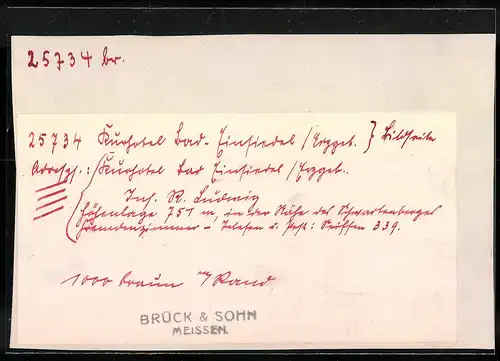 25734 br.
25734 Kurhotel Bad-Einsiedel / Erzgeb. } Bildseite
Adresss.: Kurhotel Bad Einsiedel / Erzgeb.
Inh. R. Ludwig
Höhenlage 751 m, in der Nähe des Schwartenberges
Fremdenzimmer – Telefon u. Post: Seiffen 339.
1000 braun m/ Rand
BRÜCK & SOHN
MEISSEN.